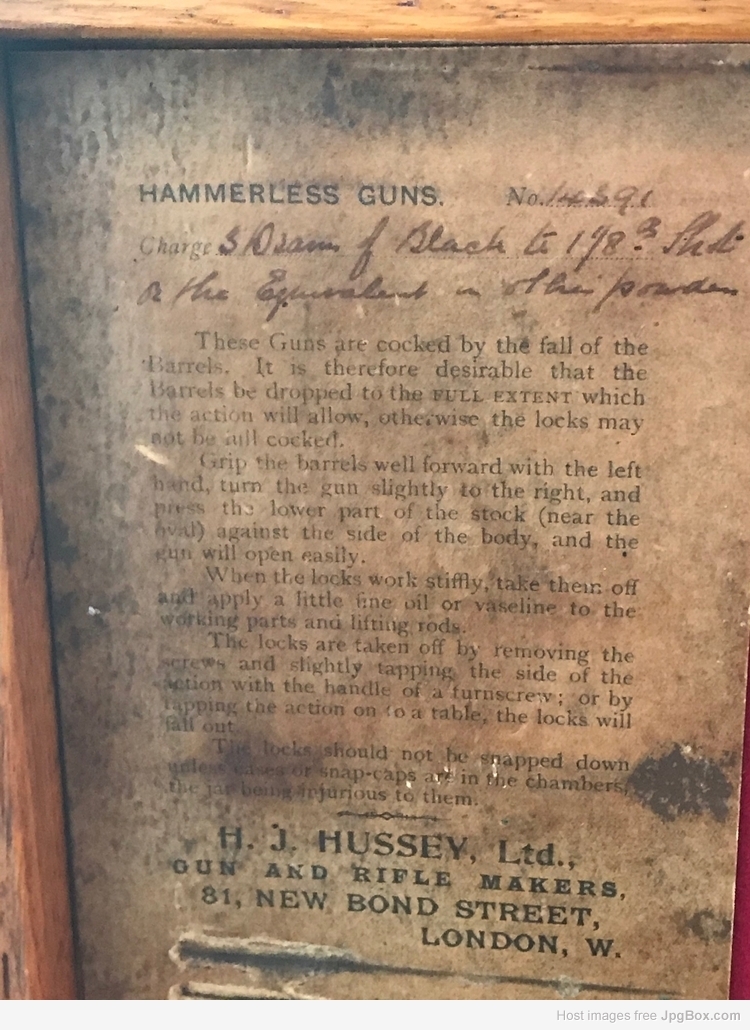 HAMMERLESS GUNS. No.
Charge 3 Drams of Black to 1 1/8 oz Shot
or the Equivalent in other powders
These Guns are cocked by the fall of the
Barrels. It is therefore desirable that the
Barrels be dropped to the FULL EXTENT which
the action will allow, otherwise the locks may
not be full cocked.
Grip the barrels well forward with the left
hand, turn the gun slightly to the right, and
press the lower part of the stock (near the
oval) against the side of the body, and the
gun will open easily.
When the locks work stiffly, take them off
and apply a little fine oil or vaseline to the
working parts and lifting rods.
The locks are taken off by removing the
screws and slightly tapping the side of the
action with the handle of a turnscrew; or by
tapping the action on to a table, the locks will
fall out
The locks should not be snapped down
unless cases or snap-caps are in the chambers,
the jar being injurious to them.
H. J. HUSSEY, Ltd.,
GUN AND RIFLE MAKERS,
81, NEW BOND STREET,
LONDON, W.
Host images free JpgBox.com